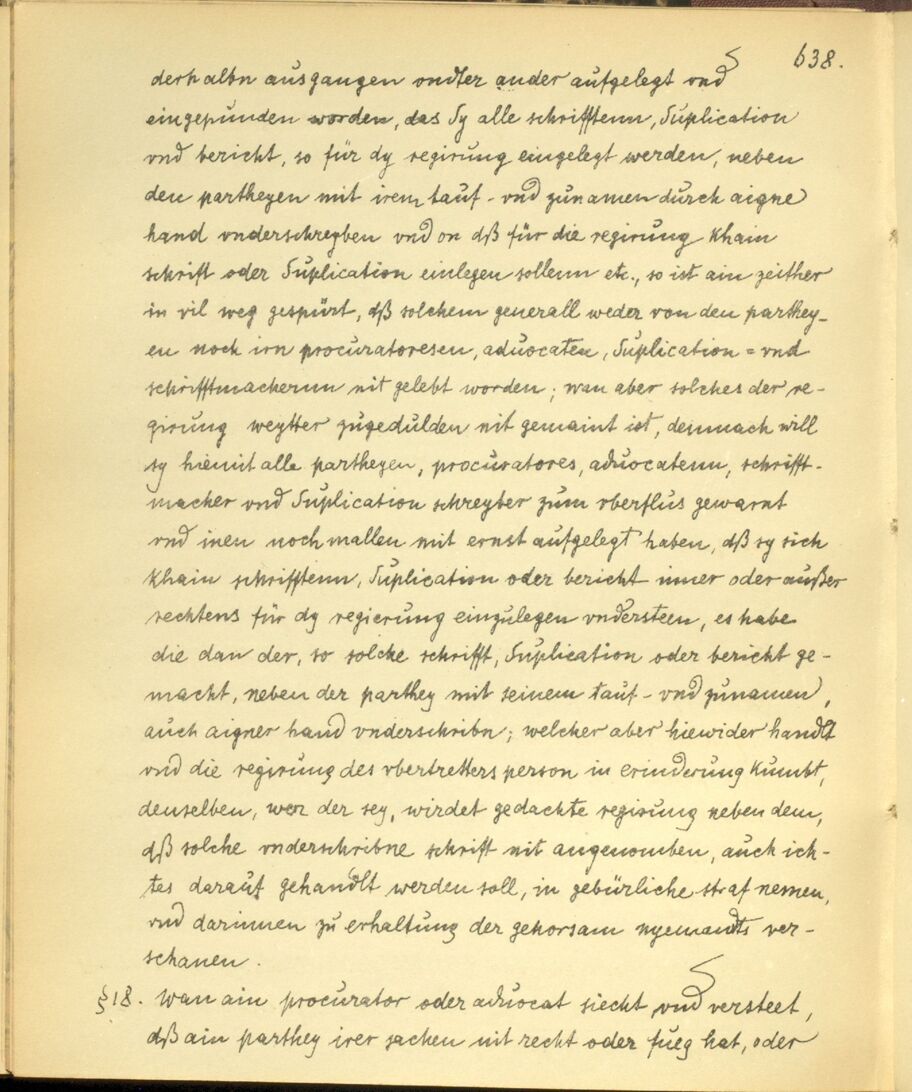 638.
derhalbn ausgangen vndter ander aufgelegt vnd
eingepunden worden, das Sy alle schrifftenn, Suplication
vnd bericht, so für dy regirung eingelegt werden, neben
den partheyen mit irem tauf- vnd zunamen durch aigne
hand vnderschreyben vnd on dß für die regirung khain
schrift oder Suplication einlegen sollenn etc., so ist ain zeither
in vil weg gespürt, dß solchem generall weder von den parthey-
en noch irn procuratoresen, aduocaten, Suplication = vnd
schrifftmachernn nit gelebt worden; wan aber solches der re-
girung weytter zugedulden nit gemaint ist, demnach will
sy hiemit alle partheyen, procuratores, aduocatenn, schrifft-
macher vnd Suplication schreyber zum vberflus gewarnt
vnd inen nochmallen mit ernst aufgelegt haben, dß sy sich
khain schrifftenn, Suplication oder bericht inner oder außer
rechtens für dy regierung einzulegen vndersteen, es habe
die dan der, so solche schrifft, Suplication oder bericht ge-
macht, neben der parthey mit seinem tauf- vnd zunamen,
auch aigner hand vnderschribn; welcher aber hiewider handlt
vnd die regirung des vbertretters person in erinderung kumbt,
denselben, wer der sey, wirdet gedachte regirung neben dem,
dß solche vnderschribne schrift nit angenomben, auch ich-
tes darauf gehandlt werden soll, in gebürliche straf nemen,
vnd darinnen zu erhaltung der gehorsam nyemandts ver-
schanen.
§18. Wan ain procurator oder aduocat siecht vnd versteet,
dß ain parthey irer sachen nit recht oder fueg hat, oder